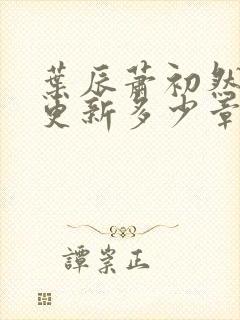 葉辰蕭初然
更新多少章
譚崇正